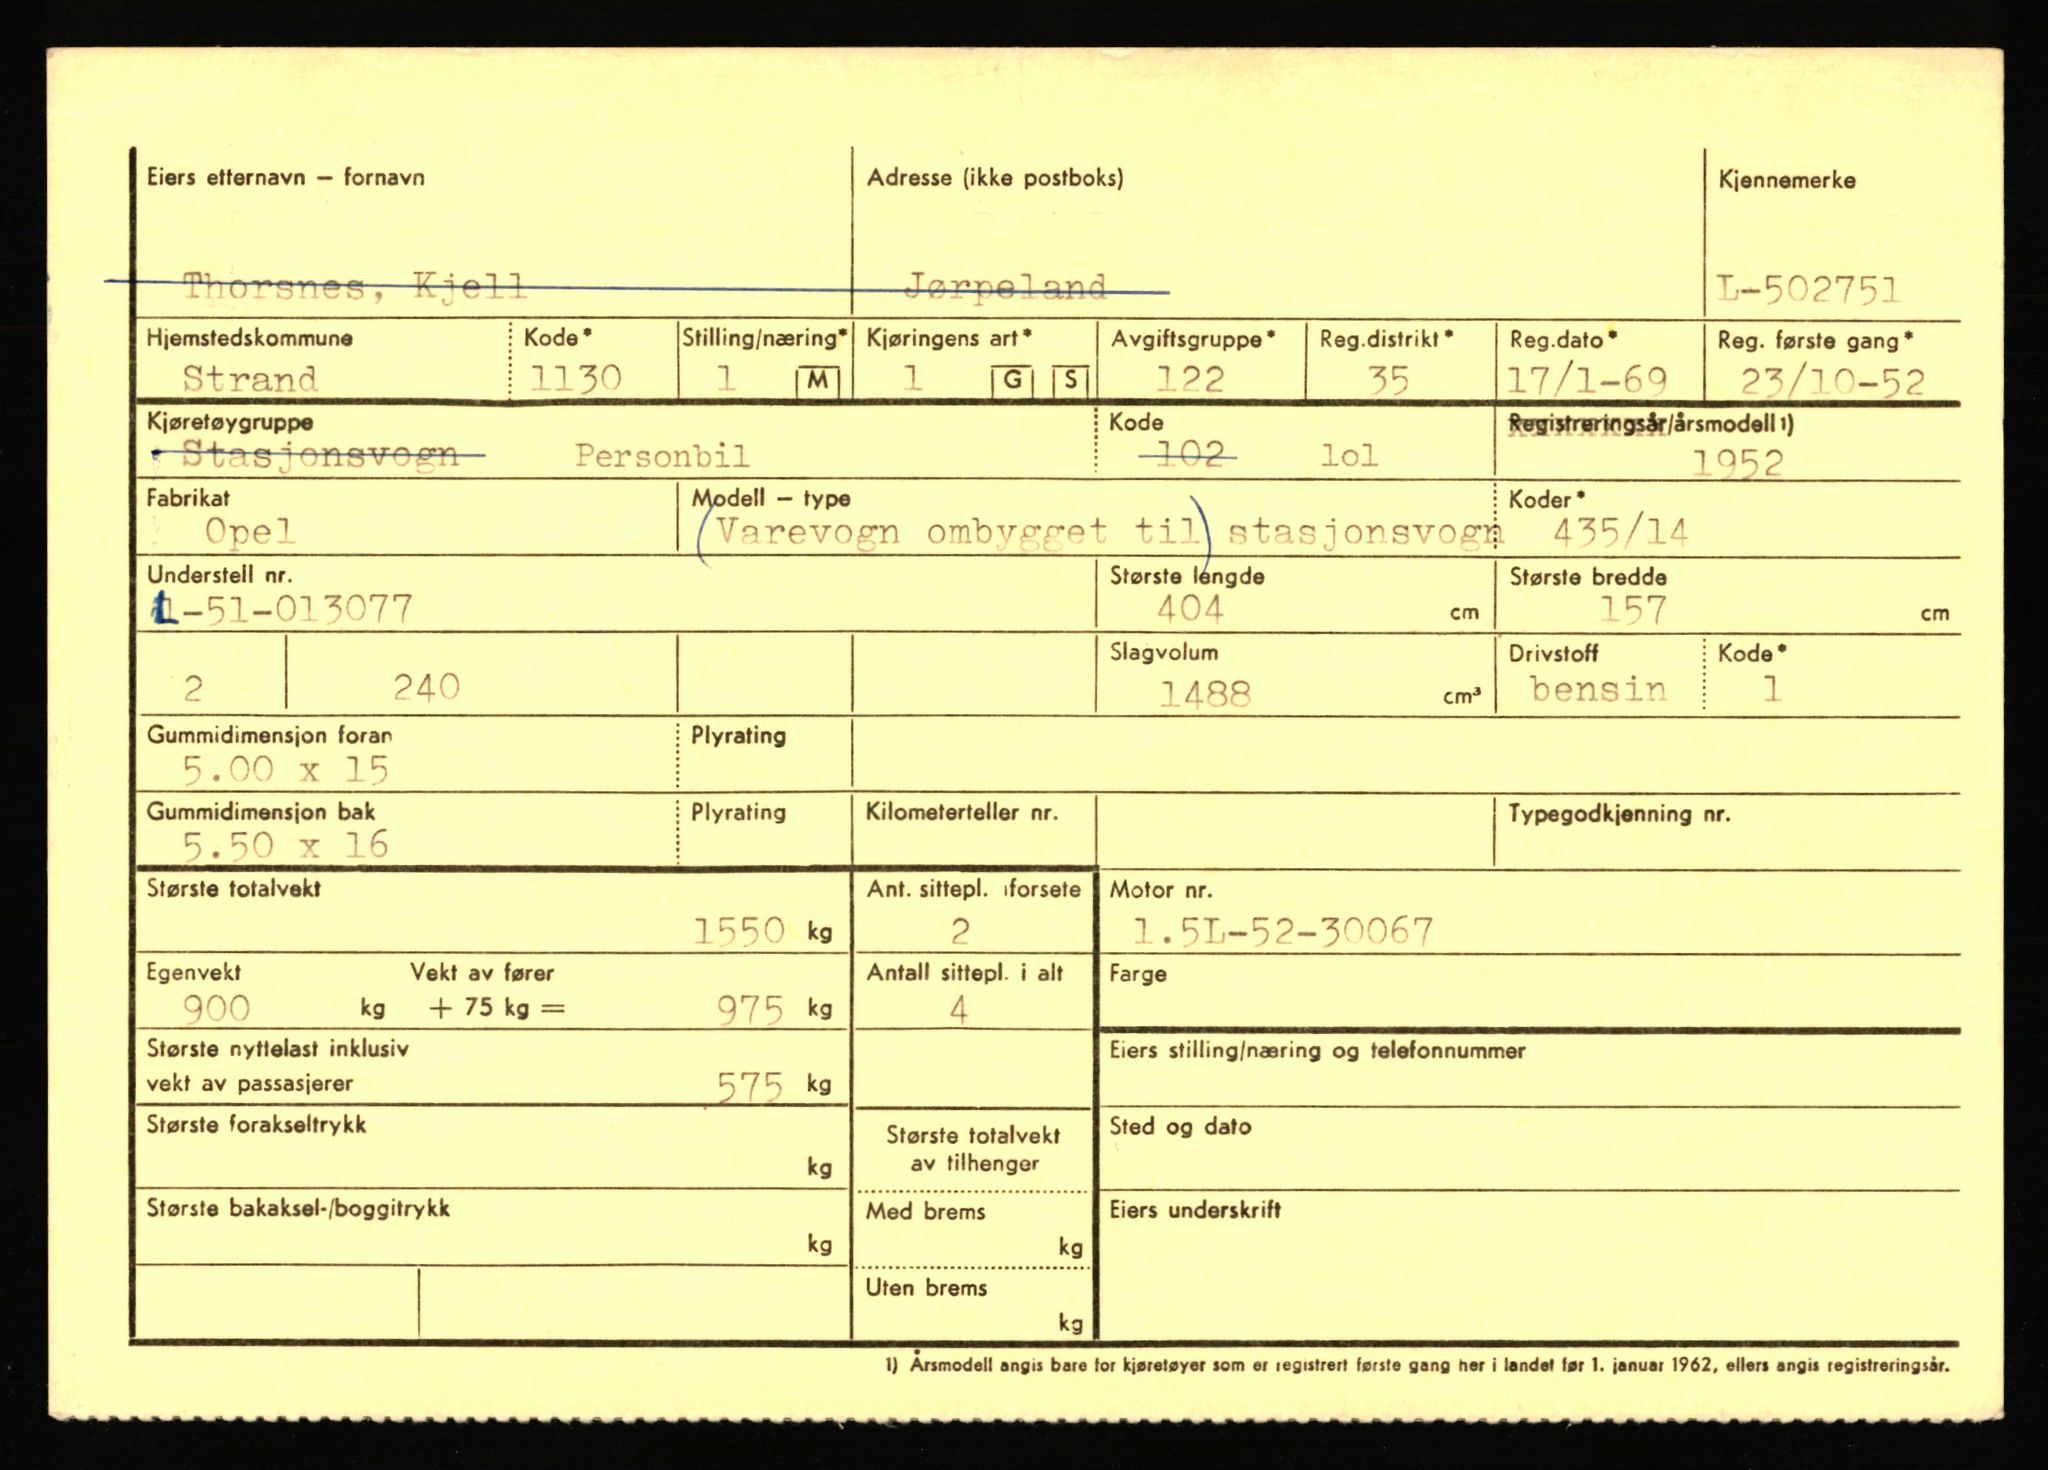 Eiers etternavn – fornavn Adresse (ikke postboks) Kjennemerke
Thorsnes, Kjell Jørpeland L-502751
Hjemstedskommune Kode* Stilling/næring* Kjøringens art* Avgiftsgruppe* Reg.distrikt* Reg.dato* Reg. første gang*
Strand 1130 1 M 1 G S 122 35 17/1-69 23/10-52
Kjøretøygruppe Kode Registreringsår/årsmodell 1)
Stasjonsvogn Personbil 102 lol 1952
Fabrikat Modell – type Koder*
Opel (Varevogn ombygget til) stasjonsvogn 435/14
Understell nr. Største lengde Største bredde
L-51-013077 404 cm 157 cm
Slagvolum Drivstoff Kode*
2 240 1488 cm³ bensin 1
Gummidimensjon foran Plyrating
5.00 x 15
Gummidimensjon bak Plyrating Kilometerteller nr. Typegodkjenning nr.
5.50 x 16
Største totalvekt Ant. sittepl. i forsete Motor nr.
1550 kg 2 1.5L-52-30067
Egenvekt Vekt av fører Antall sittepl. i alt Farge
900 kg + 75 kg = 975 kg 4
Største nyttelast inklusiv Eiers stilling/næring og telefonnummer
vekt av passasjerer 575 kg
Største forakseltrykk Største totalvekt Sted og dato
kg av tilhenger
Største bakaksel-/boggitrykk Med brems Eiers underskrift
kg kg
Uten brems
kg
1) Årsmodell angis bare for kjøretøyer som er registrert første gang her i landet før 1. januar 1962, ellers angis registreringsår.